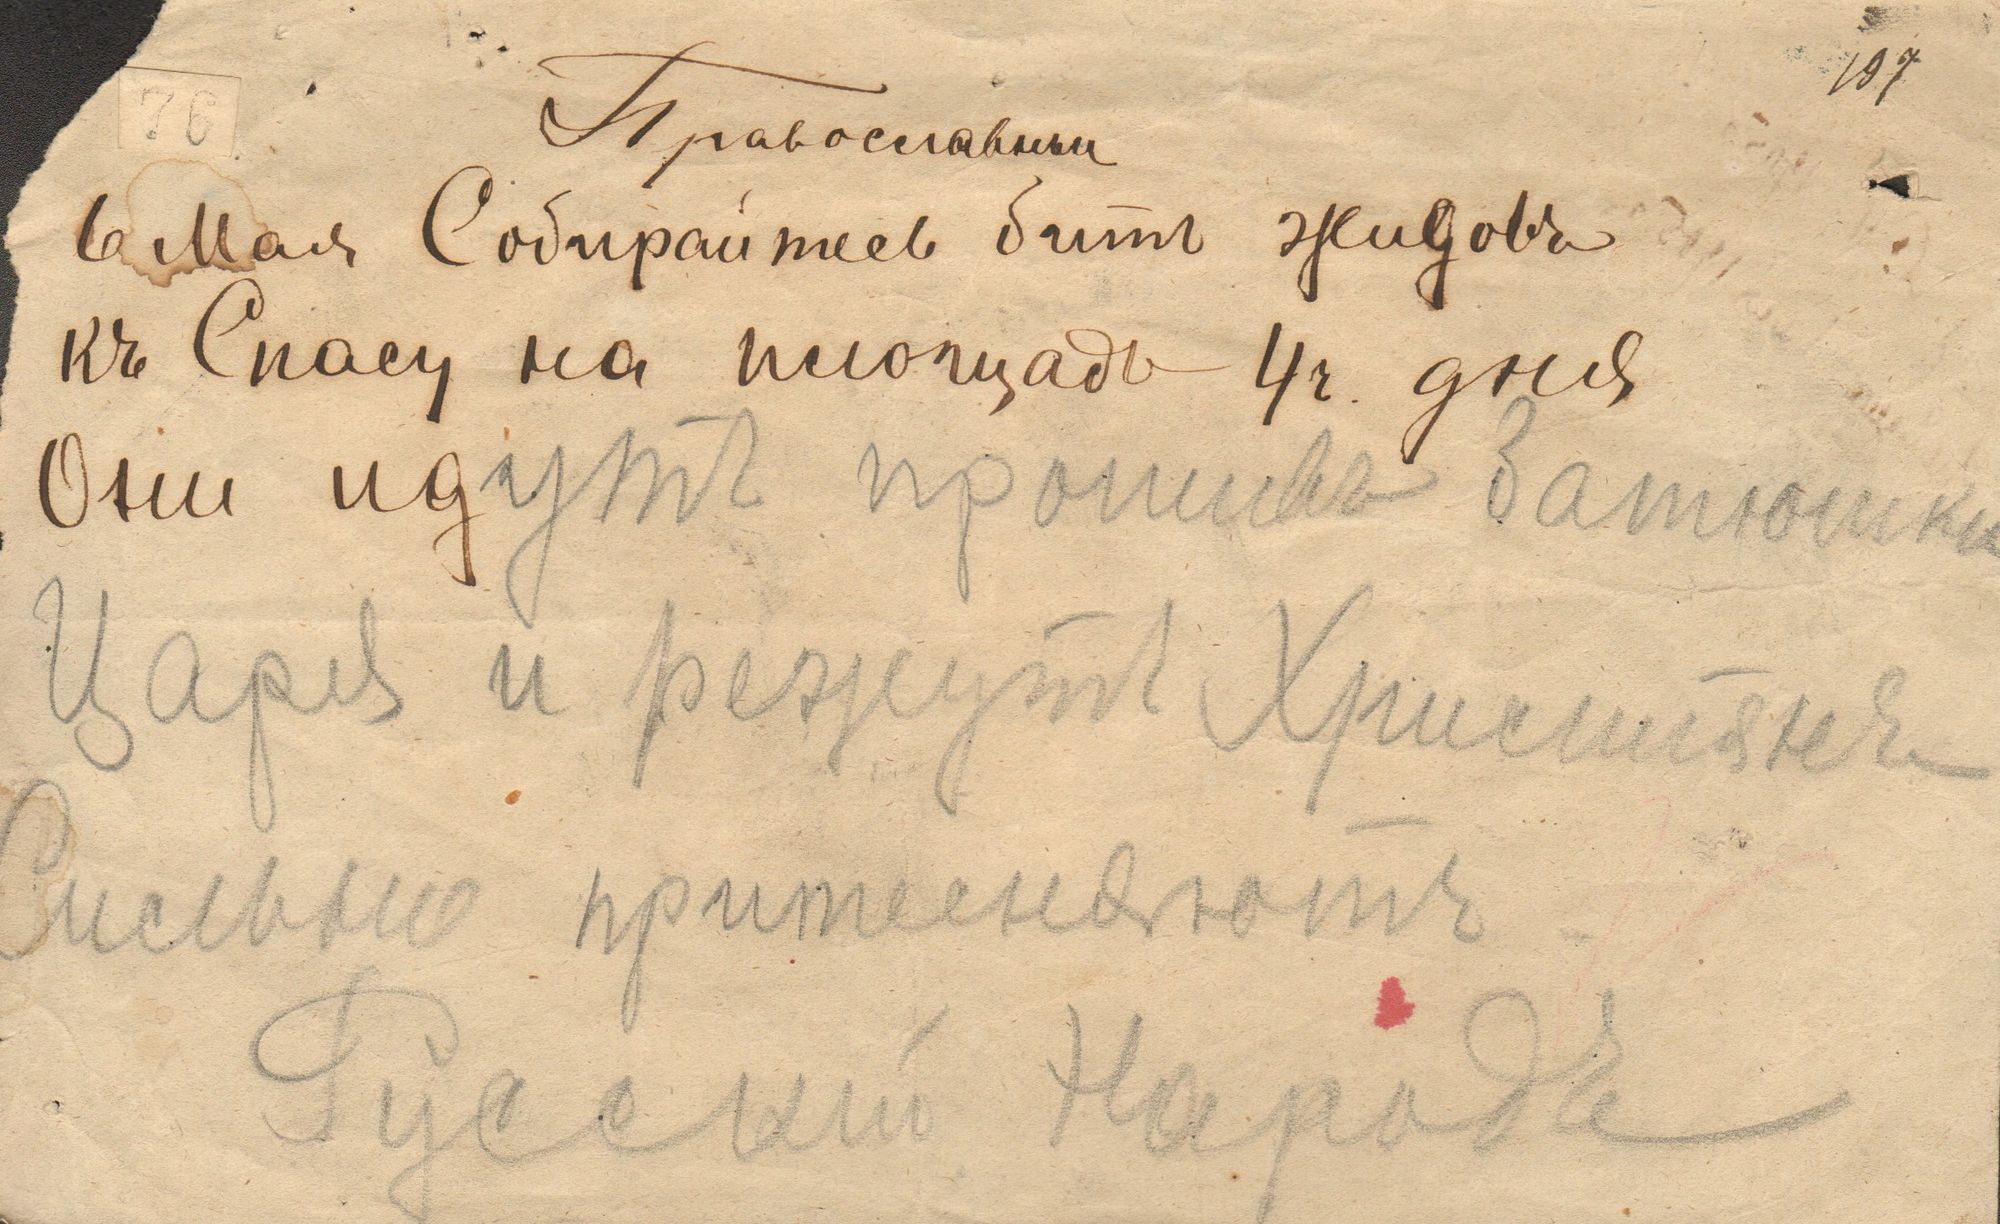 76
197
Православныи
6 Мая Собирайтесь бить жидовъ
къ Спасу на площадь 4 ч. дня
Они идутъ противъ Батюшки
Царя и режутъ Христiянъ
Сильно притесняютъ
Русский Народъ